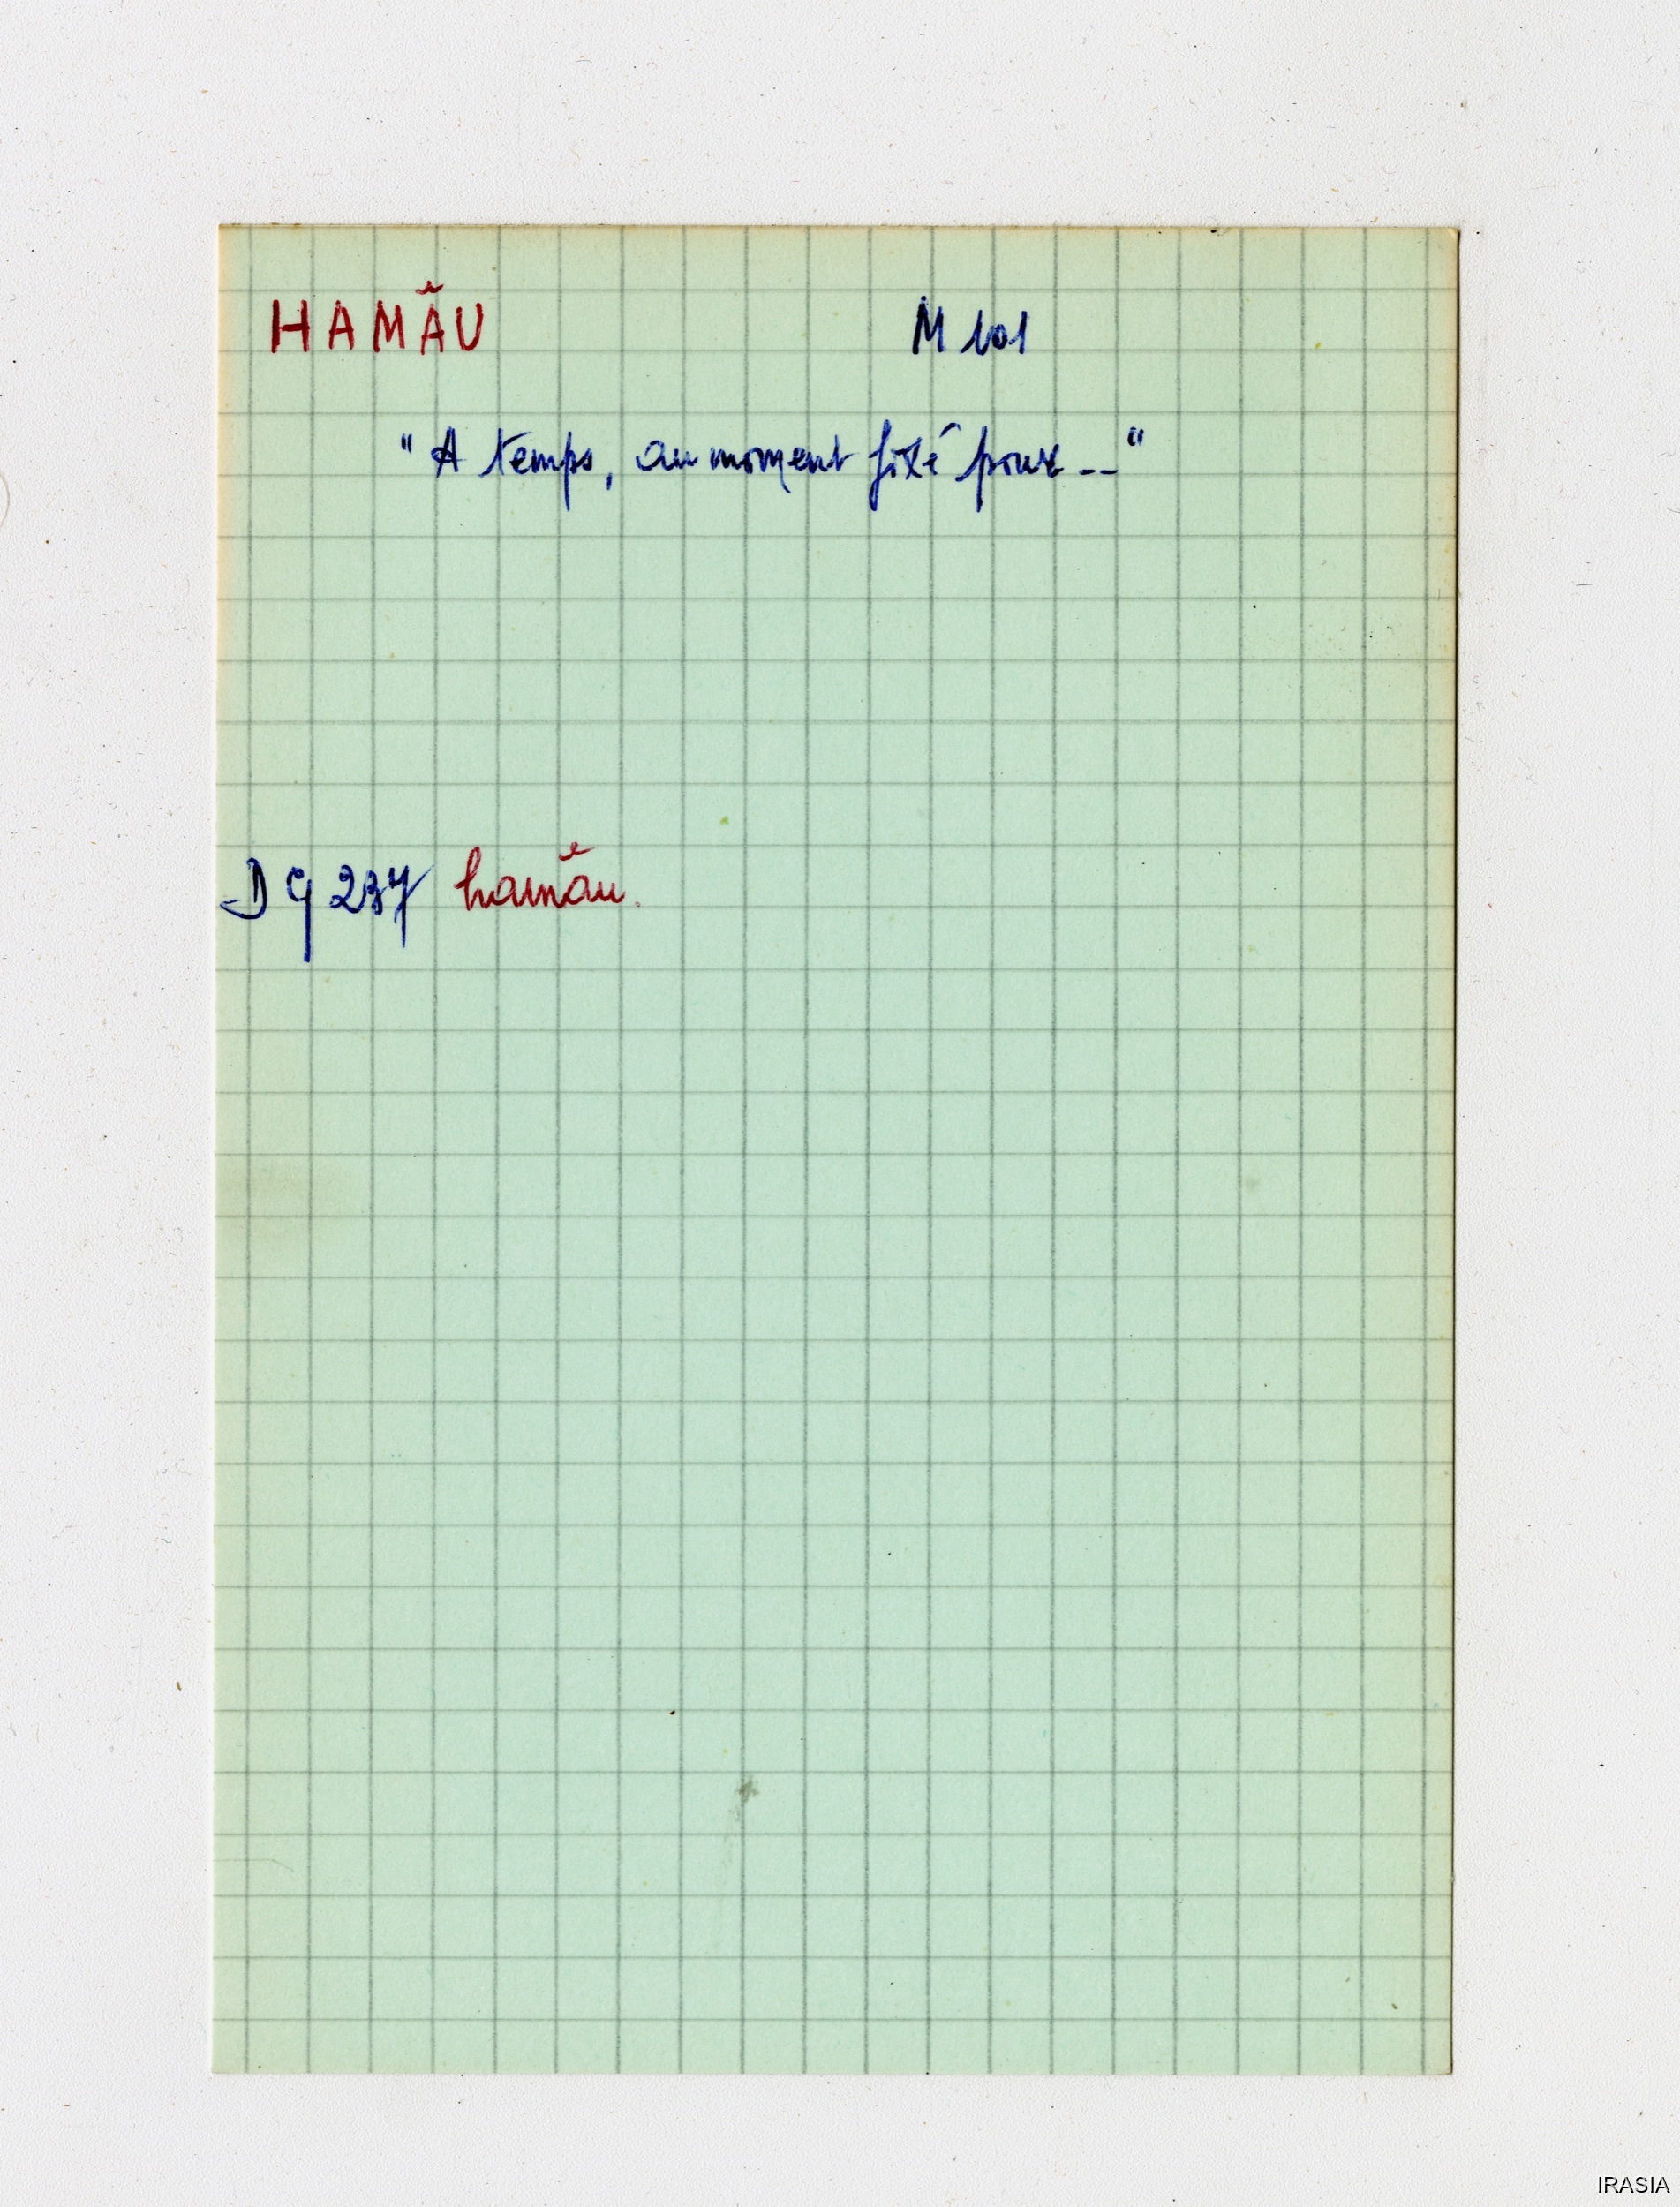 HAMÃU M 101
"A temps, au moment fixé pour --"
DG 237 hamãu.
IRASIA